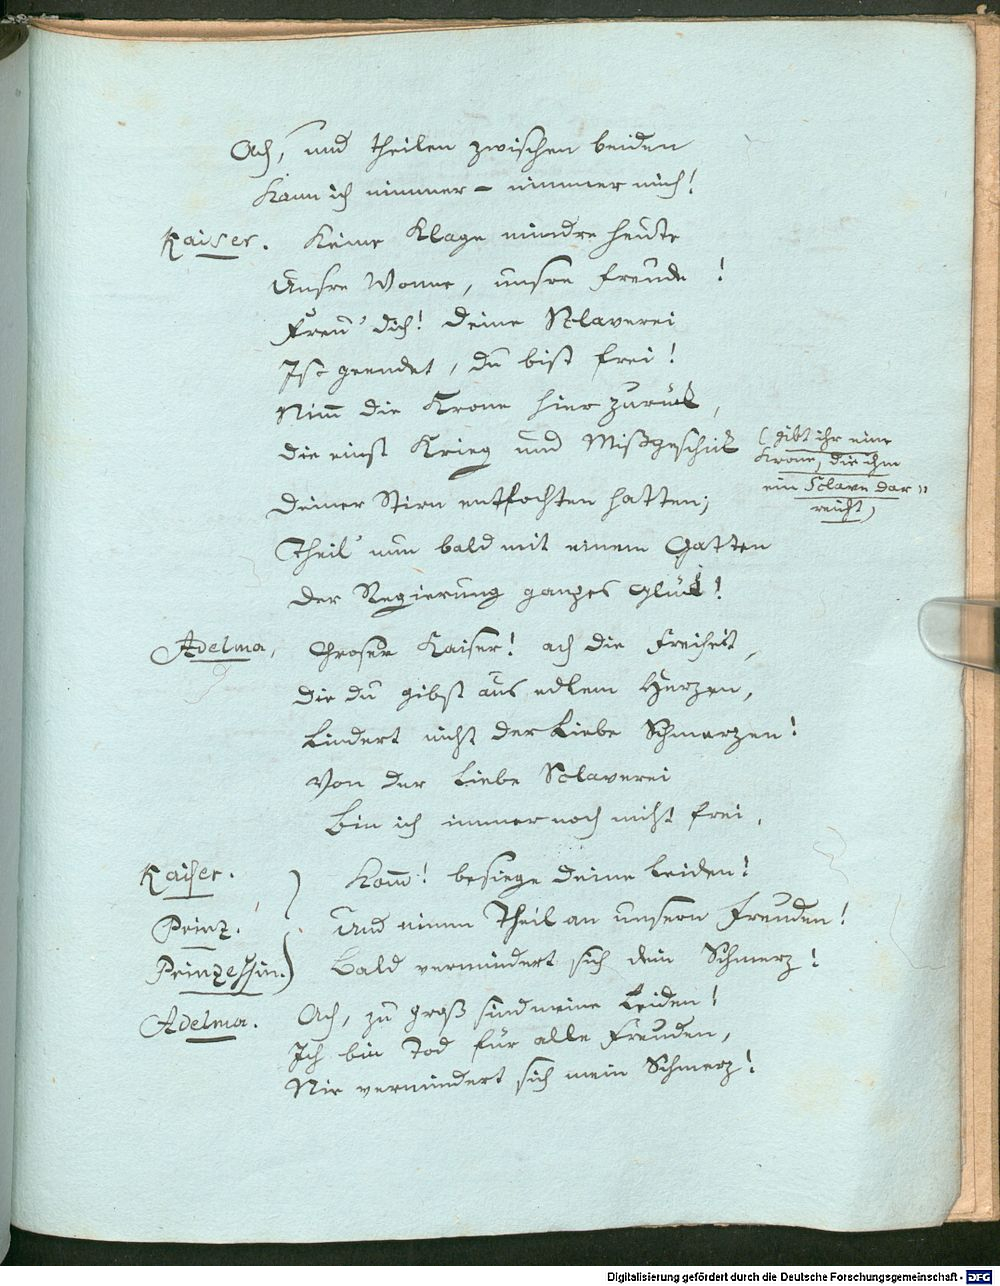 Ach, und theilen zwischen beiden
Kann ich nimmer – nimmer mich!
Kaiser. Keine Klage mindre heute
Unsre Wonne, unsre Freude!
Freu' dich! deine Sclaverei
Ist geendet, du bist frei!
Nim̄ die Krone hier zurük,
die einst Krieg und Mißgeschik
(gibt ihr eine
Krone, die ihm
ein Sclave dar„
reicht)
deiner Stirn entfochten hatten;
Theil' nun bald mit einem Gatten
der Regierung ganzes Glük!
Adelma. Groser Kaiser! ach die Freiheit,
die du gibst aus edlem Herzen,
Lindert nicht der Liebe Schmerzen!
Von der Liebe Sclaverei
Bin ich immer noch nicht frei.
Kaiser. Kom̄! besiege deine Leiden!
Prinz. Und nimm Theil an unsern Freuden!
Prinzessin. Bald vermindert sich dein Schmerz!
Adelma. Ach, zu groß sind meine Leiden!
Ich bin tod für alle Freuden,
Nie vermindert sich mein Schmerz!
Digitalisierung gefördert durch die Deutsche Forschungsgemeinschaft - DFG